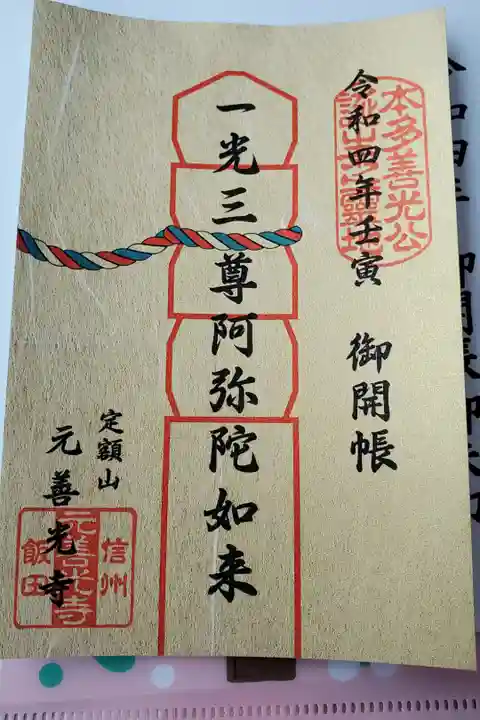 本多善光公
令和四年壬寅 御開帳
一光三尊阿弥陀如来
定額山
元善光寺
信州
元善光寺
飯田